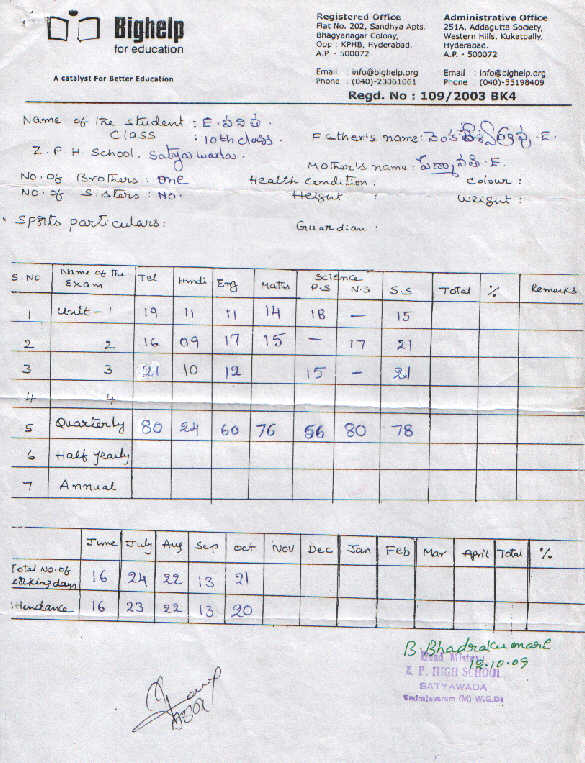 Bighelp
for education
A catalyst For Better Education
Registered Office
Flat No. 202, Sandhya Apts.
Bhagyanagar Colony,
Opp : KPHB, Hyderabad.
A.P. - 500072
Email : info@bighelp.org
Phone : (040)-23061661
Administrative Office
251A, Addagutta Society,
Western Hills, Kukatpally,
Hyderabad.
A.P. - 500072
Email : info@bighelp.org
Phone : (040)-55198409
Regd. No : 109/2003 BK4
Name of the student : E.
Class : 10th class.
Father's name: E.
Z. P H School. Satyawada.
Mother's name : E.
No. of Brothers : one Health Condition : Colour :
No. of Sisters : No. Height : Weight :
Sports particulars: Guardian :
S. No Name of the Exam Tel Hindi Eng Maths Science P.S N.S S.S Total % Remarks
1 Unit - 1 19 11 11 14 18 — 15
2 2 16 09 17 15 — 17 21
3 3 21 10 12 15 — 21
4 4
5 Quarterly 80 24 60 76 56 80 78
6 Half yearly
7 Annual
June July Aug Sep Oct Nov Dec Jan Feb Mar April Total %
Total No. of working days 16 24 22 13 21
Attendance 16 23 22 13 20
B. Bhadrakumari
12.10.09
Z. P. HIGH SCHOOL
SATYAWADA